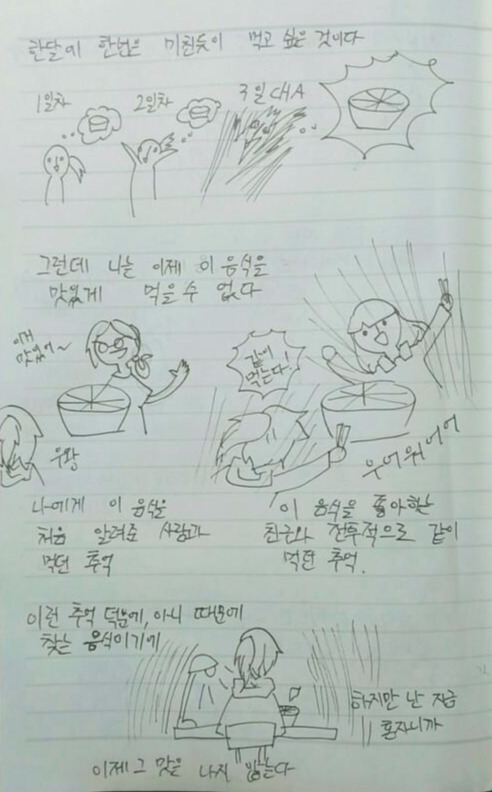 한달에 한번은 미친듯이 먹고 싶은 것이다
1일차 2일차 3일CHA
그런데 나는 이제 이 음식을
맛있게 먹을 수 없다
이거
맛있어~
우왕
같이
먹는다!
우어워어어
나에게 이 음식을
처음 알려준 사람과
먹던 추억
이 음식을 좋아하는
친구와 전투적으로 같이
먹던 추억.
이런 추억 덕분에, 아니 때문에
찾는 음식이기에
하지만 난 지금
혼자니까
이제 그 맛은 나지 않는다